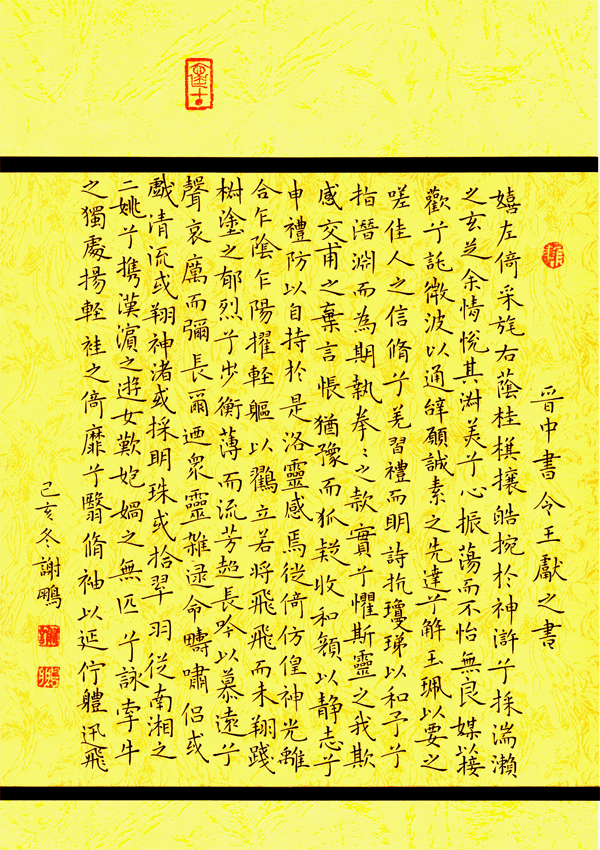 晋中書令王獻之書
嬉左倚采旄右蔭桂棋攘皓捥於神滸兮採湍瀨
之玄芝余情悅其淋美兮心振蕩而不怡無良媒以接
歡兮託微波以通辝願誠素之先達兮解玉珮以要之
嗟佳人之信脩兮羌習禮而明詩抗瓊珶以和予兮
指潛淵而為期執拳〻之款實兮懼斯靈之我欺
感交甫之棄言悵猶豫而狐疑收和顏以静志兮
申禮防以自持於是洛靈感焉徙倚仿偟神光離
合乍陰乍陽擢輕軀以鸖立若將飛飛而未翔踐
椒塗之郁烈兮步衡薄而流芳超長吟以慕遠兮
聲哀厲而彌長爾迺衆靈雜遝命疇嘯侶或
戲清流或翔神渚或採明珠或拾翠羽從南湘之
二姚兮攜漢濱之遊女歎匏媧之無匹兮詠牽牛
之獨處揚輕袿之倚靡兮翳脩袖以延佇體迅飛
己亥冬謝鵬